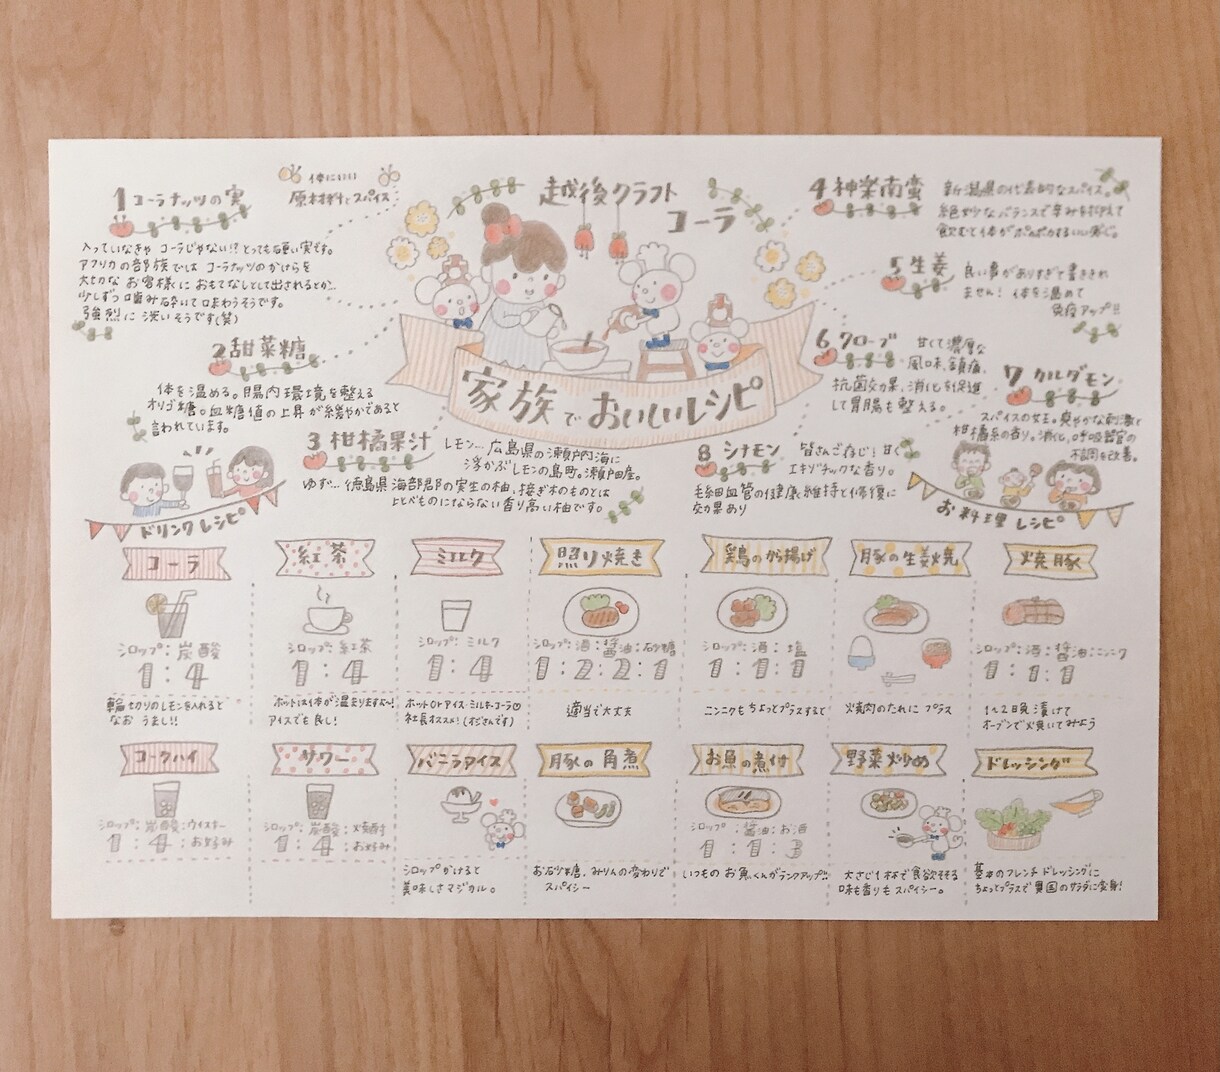 越後クラフト
コーラ
家族でおいしいレシピ
体にいい
原材料とスパイス
1 コーラナッツの実
入っていなきゃ コーラじゃない!? とっても硬い実です。
アフリカの部族では コーラナッツのかけらを
大切な お客様に おもてなしとして出されるとか…
少しずつ噛み砕いて味わうそうです。
強烈に 渋いそうです(笑)
2 甜菜糖
体を温める。腸内環境を整える
オリゴ糖。血糖値の上昇が緩やかであると
言われています。
3 柑橘果汁
レモン… 広島県の瀬戸内海に
浮かぶレモンの島町。瀬戸田産。
ゆず… 徳島県海部郡の実生の柚。接ぎ木のものとは
比べものにならない香り高い柚です。
4 神楽南蛮
新潟県の代表的なスパイス。
絶妙なバランスで辛みを抑えて
飲むと体がポカポカする
5 生姜
良い事がありすぎて書ききれ
ません! 体を温めて
免疫アップ!!
6 クローブ
甘くて濃厚な
風味、鎮痛、
抗菌効果、消化を促進
して胃腸も整える。
7 カルダモン
スパイスの女王。爽やかな刺激と
柑橘系の香り。消化、呼吸器官の
不調を改善。
8 シナモン
皆さんご存じ! 甘く
エキゾチックな香り。
毛細血管の健康維持と修復に
効果あり
ドリンクレシピ
お料理 レシピ
コーラ
シロップ:炭酸
1:4
輪切りのレモンを入れると
なお うまし!!
紅茶
シロップ:紅茶
1:4
ホットは体が温まりますよ〜!
アイスでも良し!
ミルク
シロップ:ミルク
1:4
ホットorアイス・ミルキーコーラ♡
社長オススメ!(オジさんです)
照り焼き
シロップ:酒:醤油:砂糖
1:2:2:1
適当で大丈夫
鶏のから揚げ
シロップ:酒:塩
1:1:1
ニンニクも ちょっとプラスすると
豚の生姜焼
焼肉のたれに プラス
焼豚
シロップ:酒:醤油:ニンニク
1:1:1
1〜2晩 漬けて
オーブンで焼いてみよう
コークハイ
シロップ:炭酸:ウイスキー
1:4:お好み
サワー
シロップ:炭酸:焼酎
1:4:お好み
バニラアイス
シロップかけると
美味しさマジカル。
豚の角煮
お砂糖、みりんの変わりで
スパイシー
お魚の煮付
シロップ:醤油:お酒
1:1:3
いつものお魚くんがランクアップ!!
野菜炒め
大さじ1杯で食欲そそる
味も香りもスパイシー。
ドレッシング
基本のフレンチドレッシングに
ちょっとプラスで異国のサラダに変身!